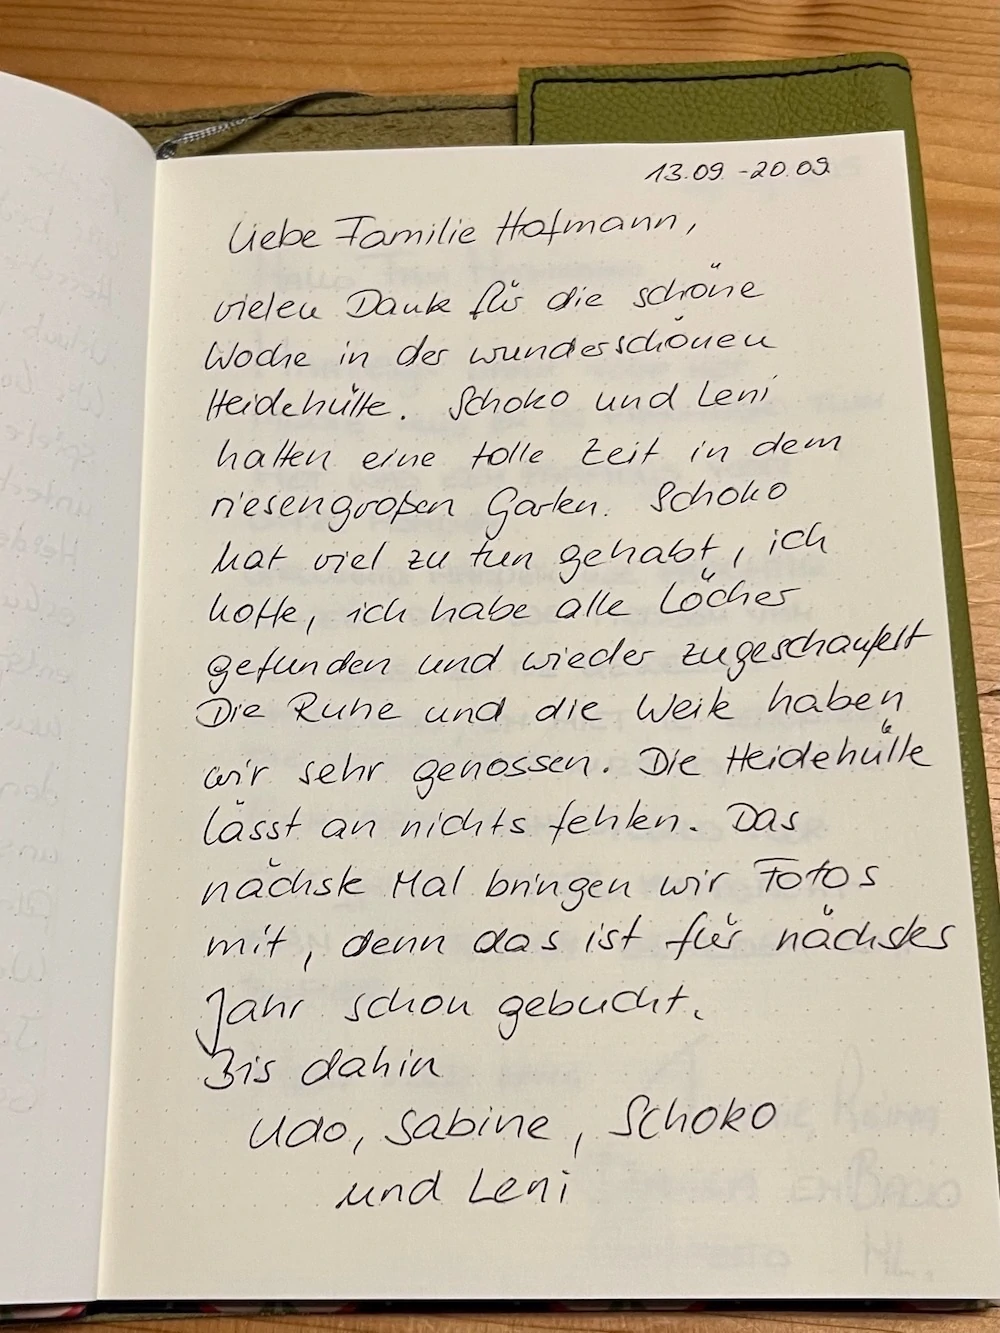 13.09. - 20.09.
Liebe Familie Hofmann,
vielen Dank für die schöne
Woche in der wunderschönen
Heidehütte. Schoko und Leni
hatten eine tolle Zeit in dem
riesengroßen Garten. Schoko
hat viel zu tun gehabt, ich
hoffe, ich habe alle Löcher
gefunden und wieder zugeschaufelt
Die Ruhe und die Weite haben
wir sehr genossen. Die Heidehütte
lässt an nichts fehlen. Das
nächste Mal bringen wir Fotos
mit, denn das ist für nächstes
Jahr schon gebucht.
Bis dahin
Udo, Sabine, Schoko
und Leni